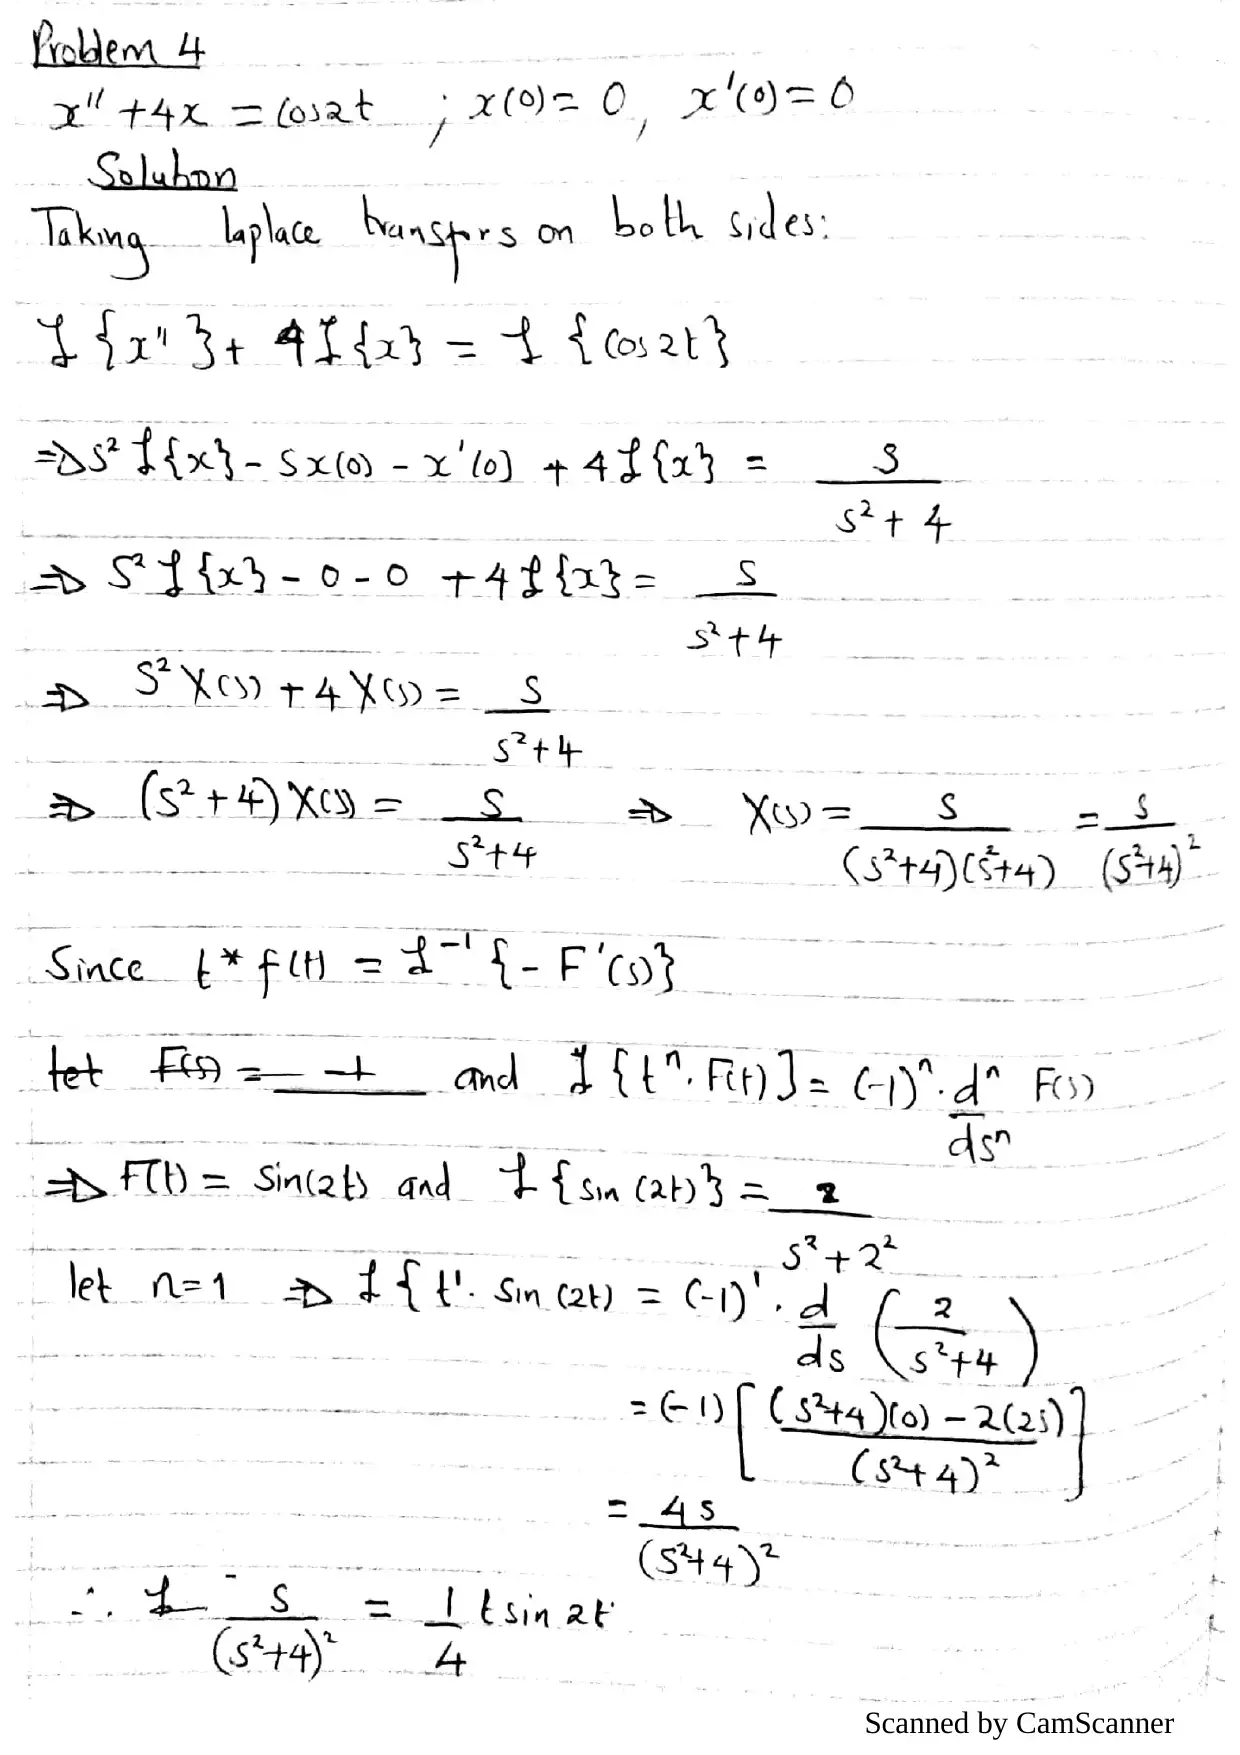 Problem 4
x'' + 4x = Cos2t ; x(0) = 0, x'(0) = 0
Solution
Taking laplace transfors on both sides:
ℒ{x''} + 4ℒ{x} = ℒ{Cos2t}
⇒ s² ℒ{x} - Sx(0) - x'(0) + 4ℒ{x} = S/(s² + 4)
⇒ S² ℒ{x} - 0 - 0 + 4ℒ{x} = S/(s² + 4)
⇒ S² X(s) + 4 X(s) = S/(s² + 4)
⇒ (s² + 4) X(s) = S/(s² + 4) ⇒ X(s) = S/((s² + 4)(s² + 4)) = S/(s² + 4)²
Since t * f(t) = ℒ⁻¹{- F'(s)}
let F(s) = 1 and ℒ{tⁿ. F(t)] = (-1)ⁿ. dⁿ/dsⁿ F(s)
⇒ F(t) = Sin(2t) and ℒ{sin (2t)} = 2/(s² + 2²)
let n=1 ⇒ ℒ{t¹. Sin (2t) = (-1)¹. d/ds (2/(s² + 4))
= (-1) [((s² + 4)(0) - 2(2s))/(s² + 4)²]
= 4s/(s² + 4)²
∴ ℒ⁻ S/(s² + 4)² = 1/4 t sin 2t
Scanned by CamScanner